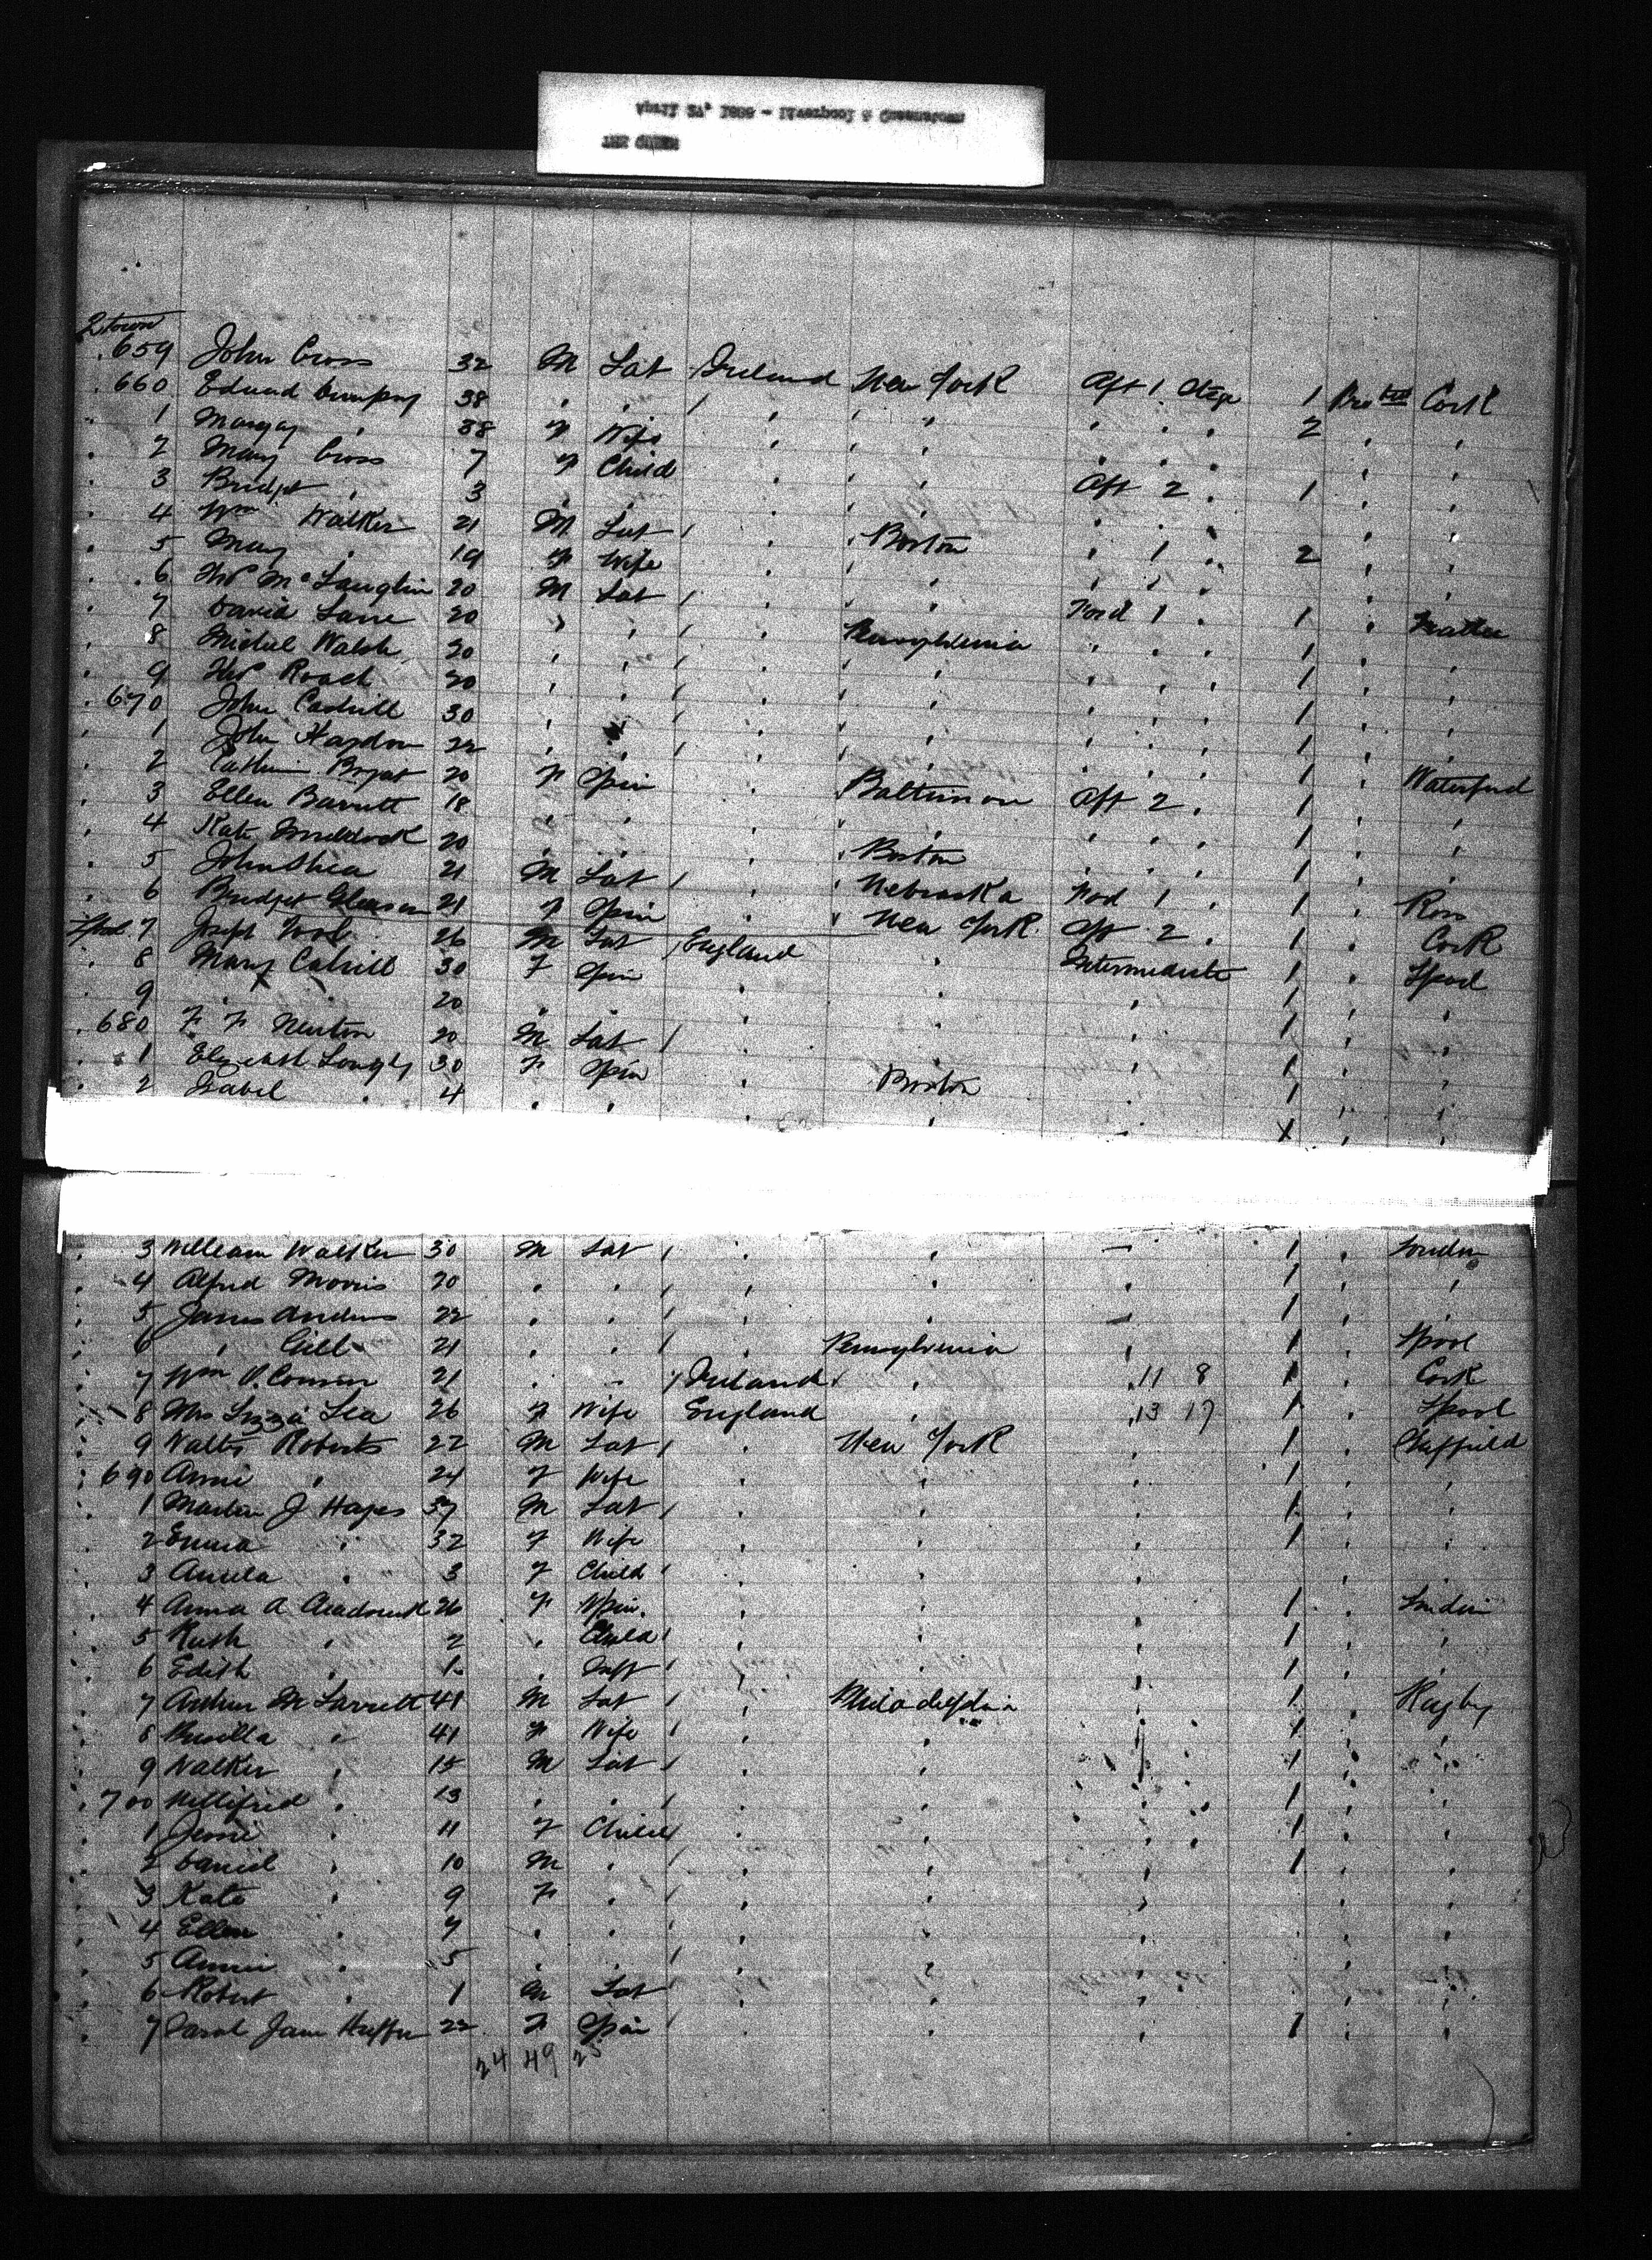 April 27, 1889 - Liverpool & Queenstown
THE QUEEN
Qtown
659 John Cross 32 M Lab Ireland New York Aft 1 Stge 1 Pro Cork
660 Edward 38 " " " " " " " 2 " "
1 " 38 F Wife " " " " " " "
2 Mary Cross 7 F Child " " Aft 2 " 1 " "
3 Bridget " 3 " " " " " " " " "
4 Wm Walker 21 M Lab " Boston " 1 " 2 " "
5 Mary " 19 F Wife " " " " " " "
6 McLaughlin 20 M Lab " " Ford 1 " 1 "
7 David Lane 20 " " " Pennsylvenia " " " 1 " "
8 Michael Walsh 20 " " " " " " " 1 " "
9 Roach 20 " " " " " " " 1 " "
670 John 30 " " " " " " " 1 " "
1 John 22 " " " " " " " 1 " Waterford
2 20 F Spin " Baltimore Aft 2 " 1 " "
3 Ellen Barrett 18 " " " " " " " 1 " "
4 Kate 20 " " " Boston " " " 1 " "
5 John Shea 21 M Lab " Nebraska 1 " 1 " Ross
6 Bridget Gleeson 21 F Spin " New York Aft 2 " 1 " Cork
Lpool 7 Joseph 26 M Lab England " Intermediate 1 " Lpool
8 Mary Cahill 30 F Spin " " " 1 " "
9 " " 20 " " " " " 1 " "
680 F F Newton 20 M Lab " " " 1 " "
1 30 F Spin " Boston " 1 " "
2 Isabel " 4 " " " " " 1 " "
3 William Walker 30 M Lab " " " 1 " London
4 Alfred Morris 20 " " " " " 1 " "
5 James Andrews 22 " " " " " 1 " "
6 " Gill 21 " " " Pennsylvenia " 1 " Lpool
7 Wm O'Connor 21 " " Ireland " " 11 8 1 " Cork
8 Mrs Lizzie Lea 26 F Wife England " " 13 17 1 " Lpool
9 Walter Roberts 22 M Lab " New York " 1 " Sheffield
690 Annie " 24 F Wife " " " 1 " "
1 Martin J Hayes 37 M Lab " " " 1 " "
2 Emma " 32 F Wife " " " 1 " "
3 " 3 F Child " " " " "
4 Anna A 26 F Spin " " " 1 " London
5 Ruth " 2 " Child " " " 1 " "
6 Edith " 1 " Inft " " " 1 " "
7 Arthur 41 M Lab " Philadelphia " 1 " Rugby
8 " 41 F Wife " " " 1 " "
9 Walker " 15 M Lab " " " 1 " "
700 " 13 " " " " " 1 " "
1 Jessie " 11 F Child " " " 1 " "
2 Daniel " 10 M " " " " 1 " "
3 Kate " 9 F " " " " " "
4 Ellen " 7 " " " " " " "
5 Annie " 5 " " " " " " "
6 Robert " 1 M Lab " " " " "
7 Sarah Jane 22 F Spin " " " 1 " "
24 49 25